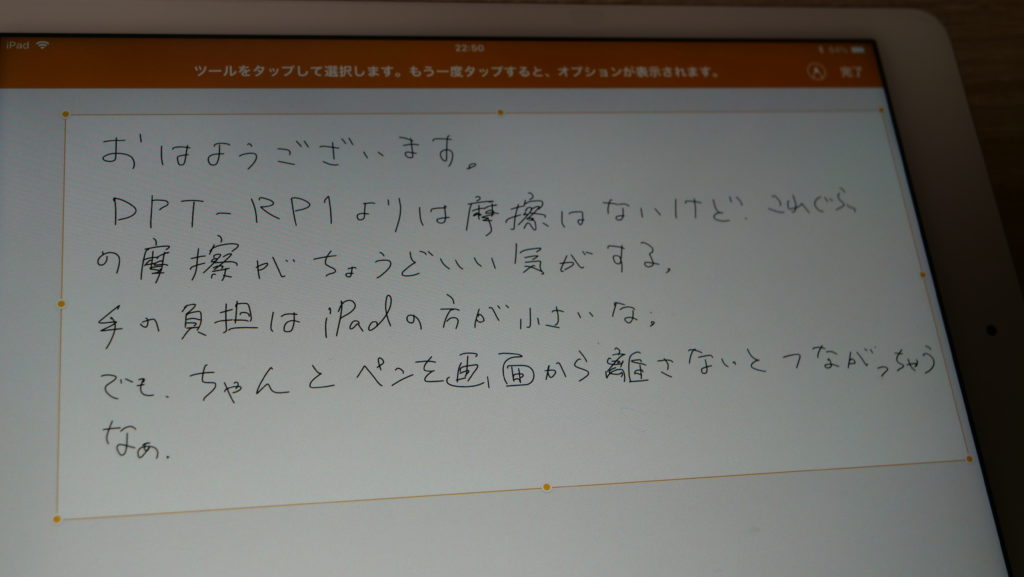 iPad 22:50 64%
ツールをタップして選択します。もう一度タップすると、オプションが表示されます。 完了
おはようございます。
DPT-RP1よりは摩擦はないけど、これぐらい
の摩擦がちょうどいい気がする。
手の負担はiPadの方が小さいな。
でも、ちゃんとペンを画面から離さないとつながっちゃう
なぁ.